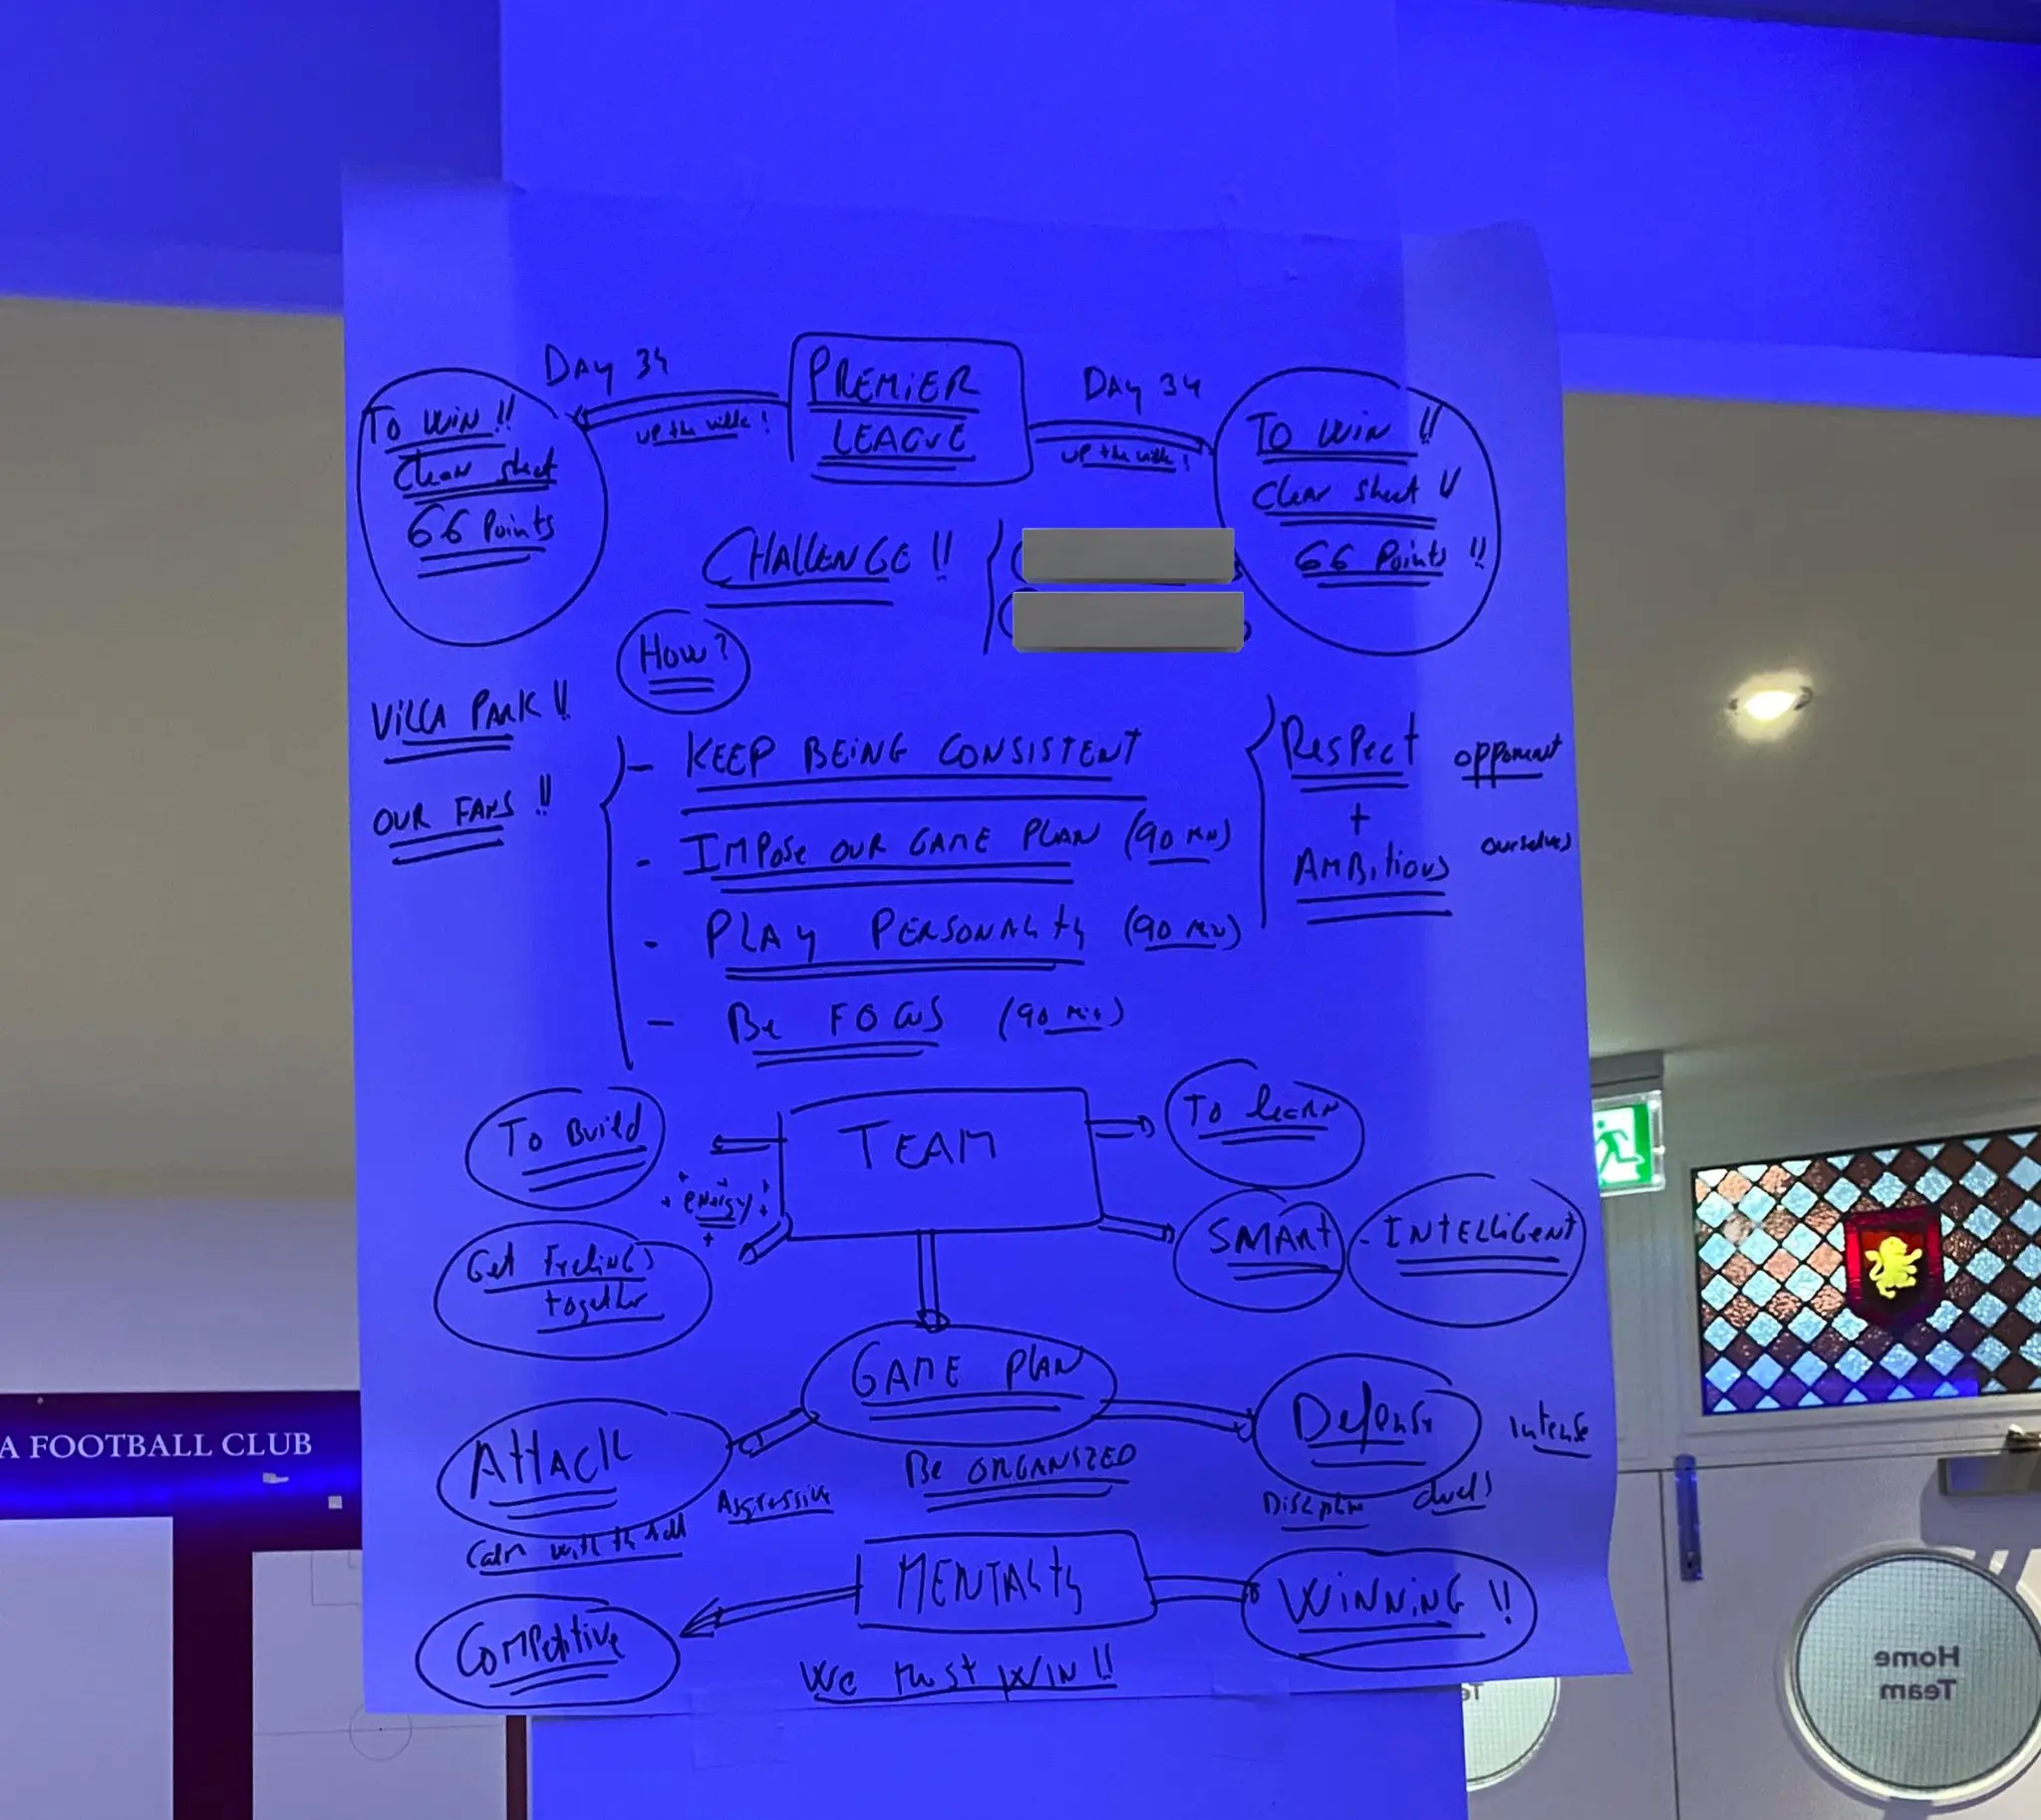 DAY 34
PREMIER
LEAGUE
DAY 34
UP the villa!
UP the villa!
TO WIN!!
Clean sheet
66 Points
TO WIN!!
Clean sheet !!
66 Points !!
CHALLENGE!!
How?
VILLA PARK!!
OUR FANS!!
- KEEP BEING CONSISTENT
- IMPOSE OUR GAME PLAN (90 MIN)
- PLAY PERSONALITY (90 MIN)
- Be FOCUS (90 Min)
Respect opponent
+
AMBitious ourselves
To Build
TEAM
To learn
energy
Get Feelings
together
SMARt
- INTELLiGENt
GAME PLAN
Attack
Defense
Intense
Be ORGANIZED
Aggressive
Calm with the ball
duels
MENTALity
Competitive
WiNNiNG!!
We must WIN!!
A FOOTBALL CLUB
Home
Team